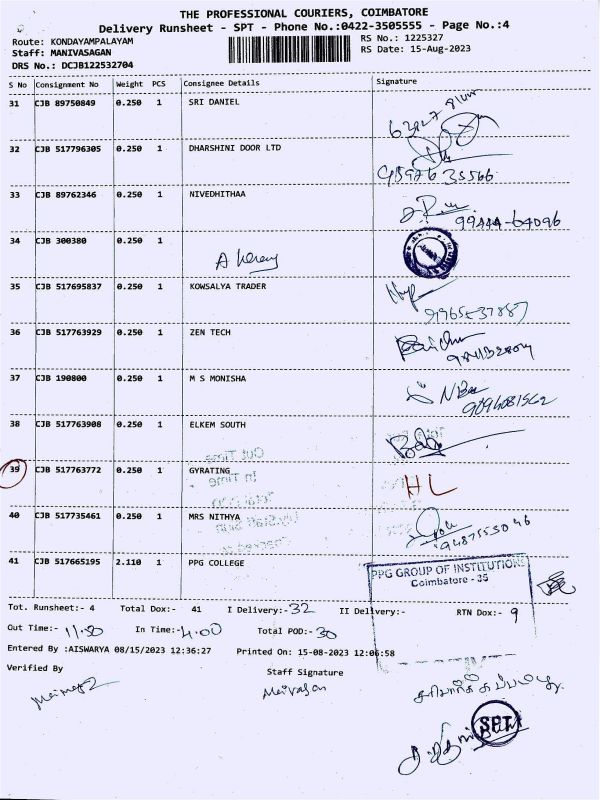 THE PROFESSIONAL COURIERS, COIMBATORE
Delivery Runsheet - SPT - Phone No.:0422-3505555 - Page No.:4
Route: KONDAYAMPALAYAM RS No.: 1225327
Staff: MANIVASAGAN RS Date: 15-Aug-2023
DRS No.: DCJB122532704
S No Consignment No Weight PCS Consignee Details Signature
31 CJB 89750849 0.250 1 SRI DANIEL
32 CJB 517796305 0.250 1 DHARSHINI DOOR LTD
33 CJB 89762346 0.250 1 NIVEDHITHAA
99444-64096
34 CJB 300380 0.250 1
35 CJB 517695837 0.250 1 KOWSALYA TRADER
9965537887
36 CJB 517763929 0.250 1 ZEN TECH
37 CJB 190800 0.250 1 M S MONISHA
9094081562
38 CJB 517763908 0.250 1 ELKEM SOUTH
Out Time
39 CJB 517763772 0.250 1 GYRATING HL
In Time
40 CJB 517735461 0.250 1 MRS NITHYA
9487553046
41 CJB 517665195 2.110 1 PPG COLLEGE
PPG GROUP OF INSTITUTIONS
Coimbatore - 35
Tot. Runsheet:- 4 Total Dox:- 41 I Delivery:- 32 II Delivery:- RTN Dox:- 9
Out Time:- 11.50 In Time:- 4.00 Total POD:- 30
Entered By :AISWARYA 08/15/2023 12:36:27 Printed On: 15-08-2023 12:06:58
Verified By Staff Signature
SPT